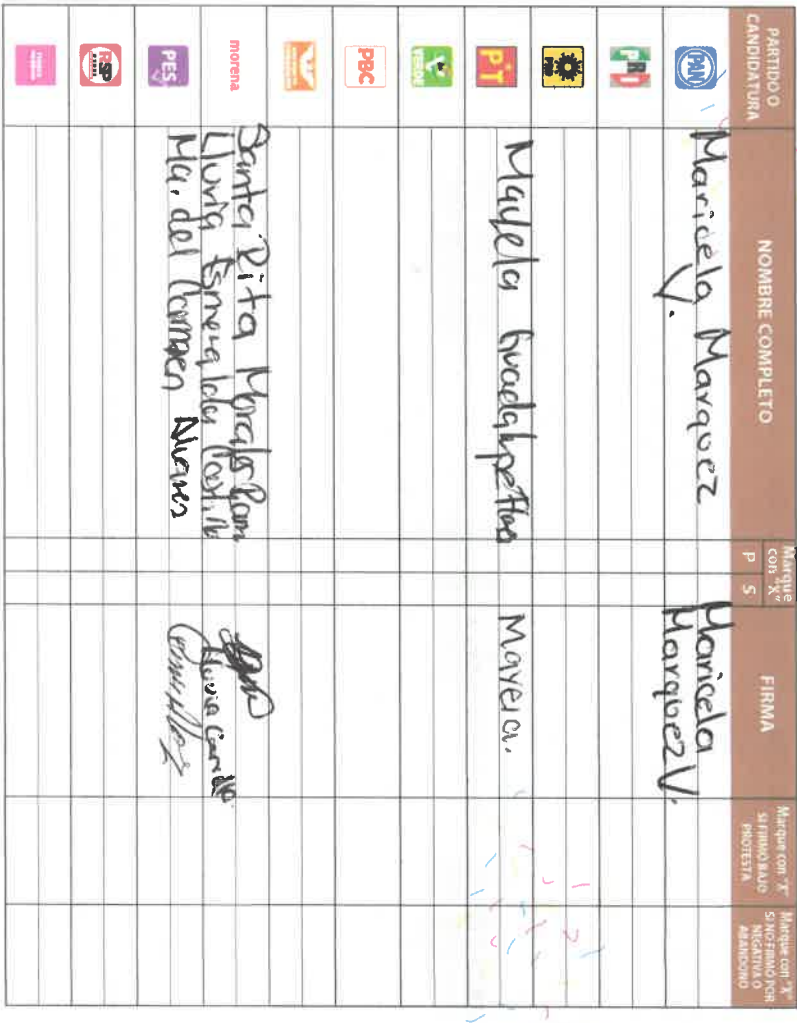 PARTIDO O CANDIDATURA
NOMBRE COMPLETO
Marque con "X"
P S
FIRMA
Marque con "X" SI FIRMÓ BAJO PROTESTA
Marque con "X" SI NO FIRMÓ POR NEGATIVA O ABANDONO
PAN
Maricela Marquez
V.
Maricela
Marquez V.
PRI
PRD
PT
Mayela Guadalupe
Mayela.
VERDE
PBC
morena
Santa Rita Morales
Lluvia Esmeralda Castillo
Lluvia
PES
Ma. del Carmen
RSP